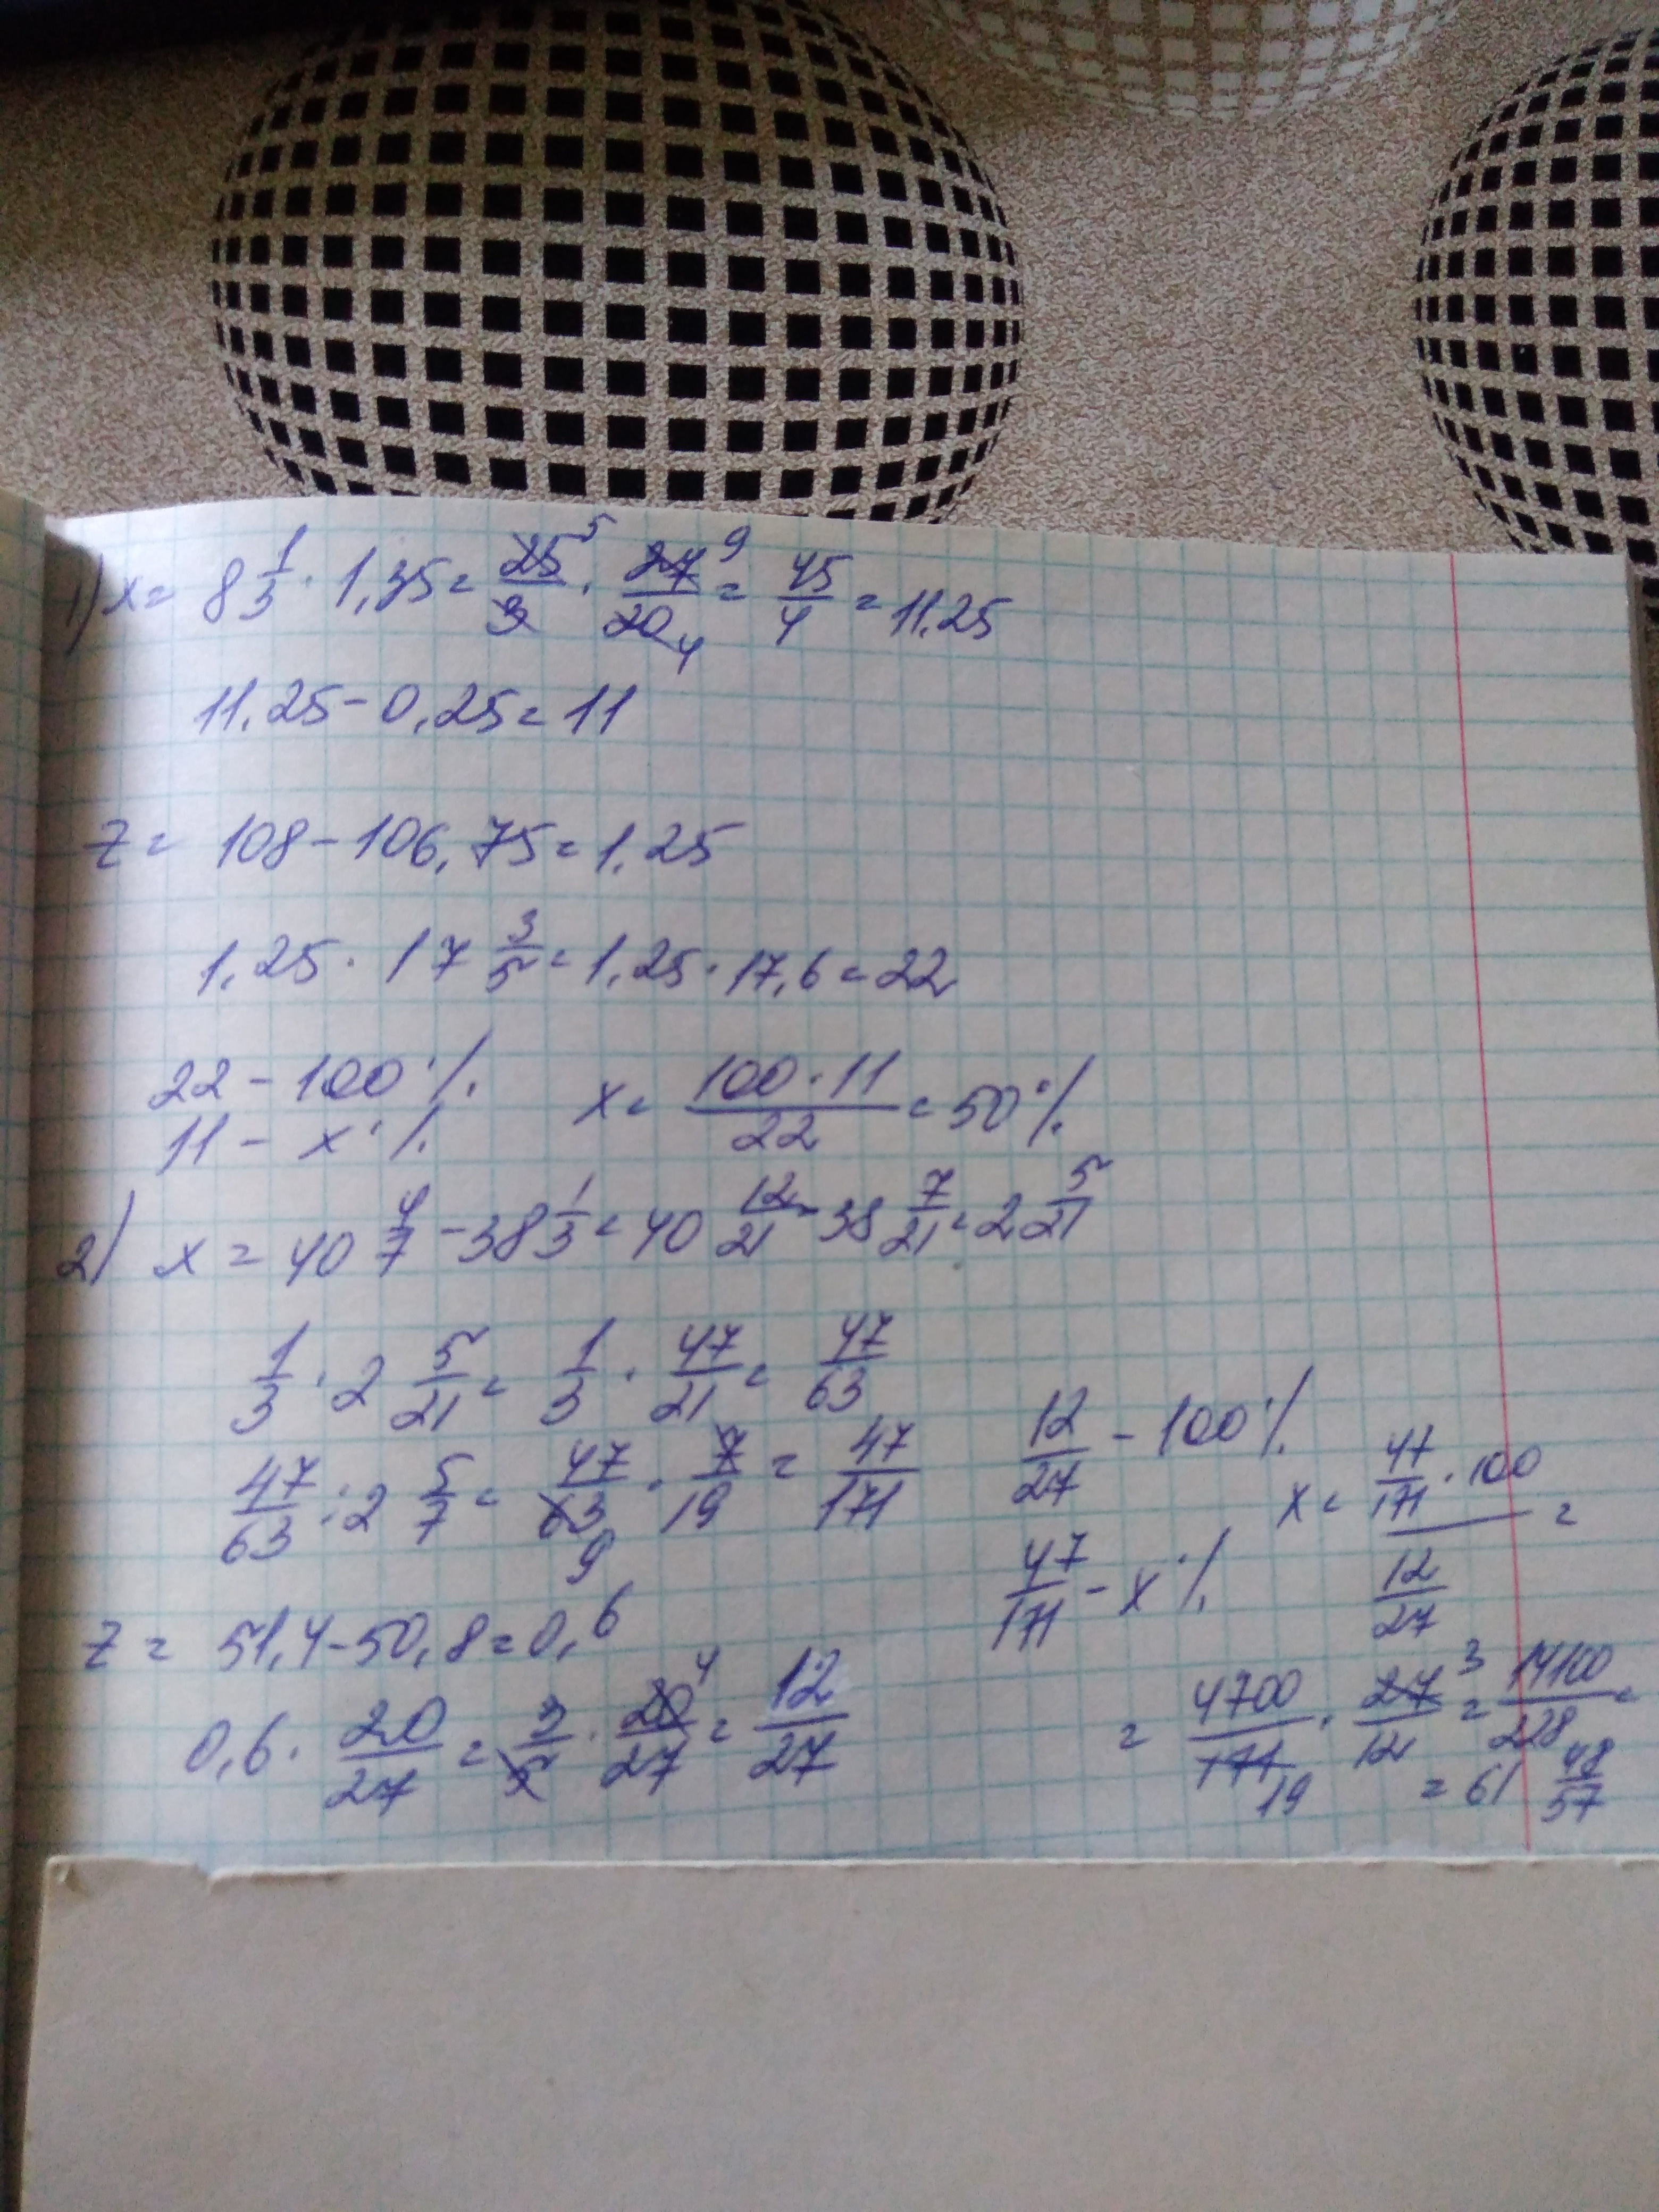 1) x = 8 1/3 · 1,35 = 25/3 · 27/20 = 45/4 = 11,25
5 9 4
11,25 - 0,25 = 11
z = 108 - 106,75 = 1,25
1,25 · 17 3/5 = 1,25 · 17,6 = 22
22 - 100%
11 - x%
x = 100·11/22 = 50%
2) x = 40 4/7 - 38 1/3 = 40 12/21 - 38 7/21 = 2 5/21
1/3 · 2 5/21 = 1/3 · 47/21 = 47/63
47/63 : 2 5/7 = 47/63 · 7/19 = 47/171
9
z = 51,4 - 50,8 = 0,6
0,6 · 20/27 = 3/5 · 20/27 = 12/27
4
12/27 - 100%
47/171 - x%
x = 47/171 · 100 / 12/27 =
= 4700/171 · 27/12 = 14100/228 =
19 3
= 61 48/57